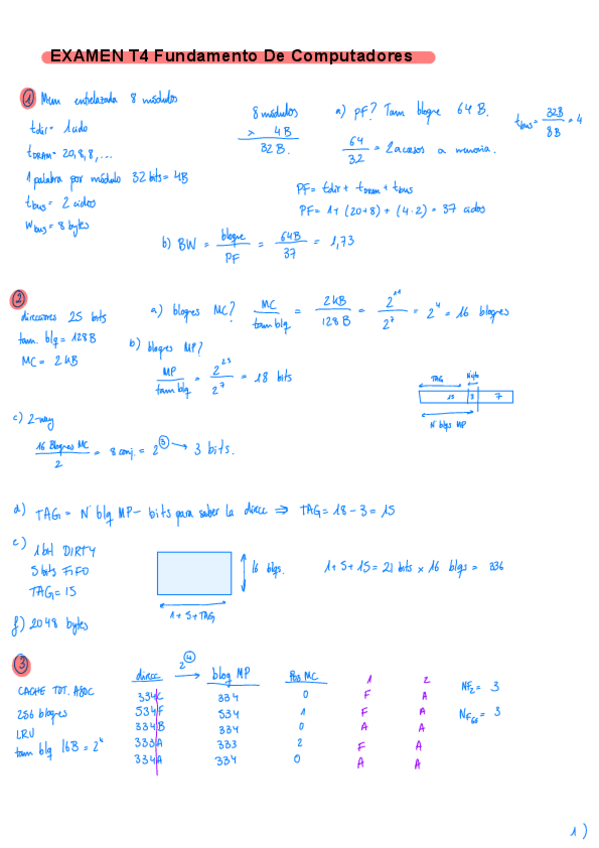 EXAMEN T4 Fundamento De Computadores
① Mem entrelazada 8 módulos
tdir = 1 ciclo
tDRAM = 20,8,8,...
1 palabra por módulo 32 bits = 4B
tbus = 2 ciclos
Wbus = 8 bytes
8 módulos
x 4B
32 B.
a) PF? Tam bloque 64 B.
64/32 = 2 accesos a memoria.
tbus = 32B/8B = 4
PF = tdir + tDRAM + tbus
PF = 1 + (20+8) + (4·2) = 37 ciclos
b) BW = bloque/PF = 64B/37 = 1,73
②
direcciones 25 bits
tam. blq = 128B
MC = 2 kB
a) bloques MC? MC/tam blq = 2kB/128 B = 2^11/2^7 = 2^4 = 16 bloques
b) bloques MP?
MP/tam blq = 2^25/2^7 = 18 bits
TAG
15 3 7
Nº blqs MP
c) 2-way
16 Bloques MC/2 = 8 conj. = 2^③ → 3 bits.
d) TAG = Nº blq MP - bits para saber la direcc ⇒ TAG = 18 - 3 = 15
e) 1 bit DIRTY
5 bits FIFO
TAG = 15
16 blqs.
1 + 5 + TAG
1 + 5 + 15 = 21 bits x 16 blqs = 336
f) 2048 bytes
③
CACHE TOT. ASOC
256 bloques
LRU
tam blq 16B = 2^4
direcc 2^④ → bloq MP Pos MC 1 2
334C 334 0 F A
534F 534 1 F A
334B 334 0 A A
333A 333 2 F A
334A 334 0 A A
NF2 = 3
1)